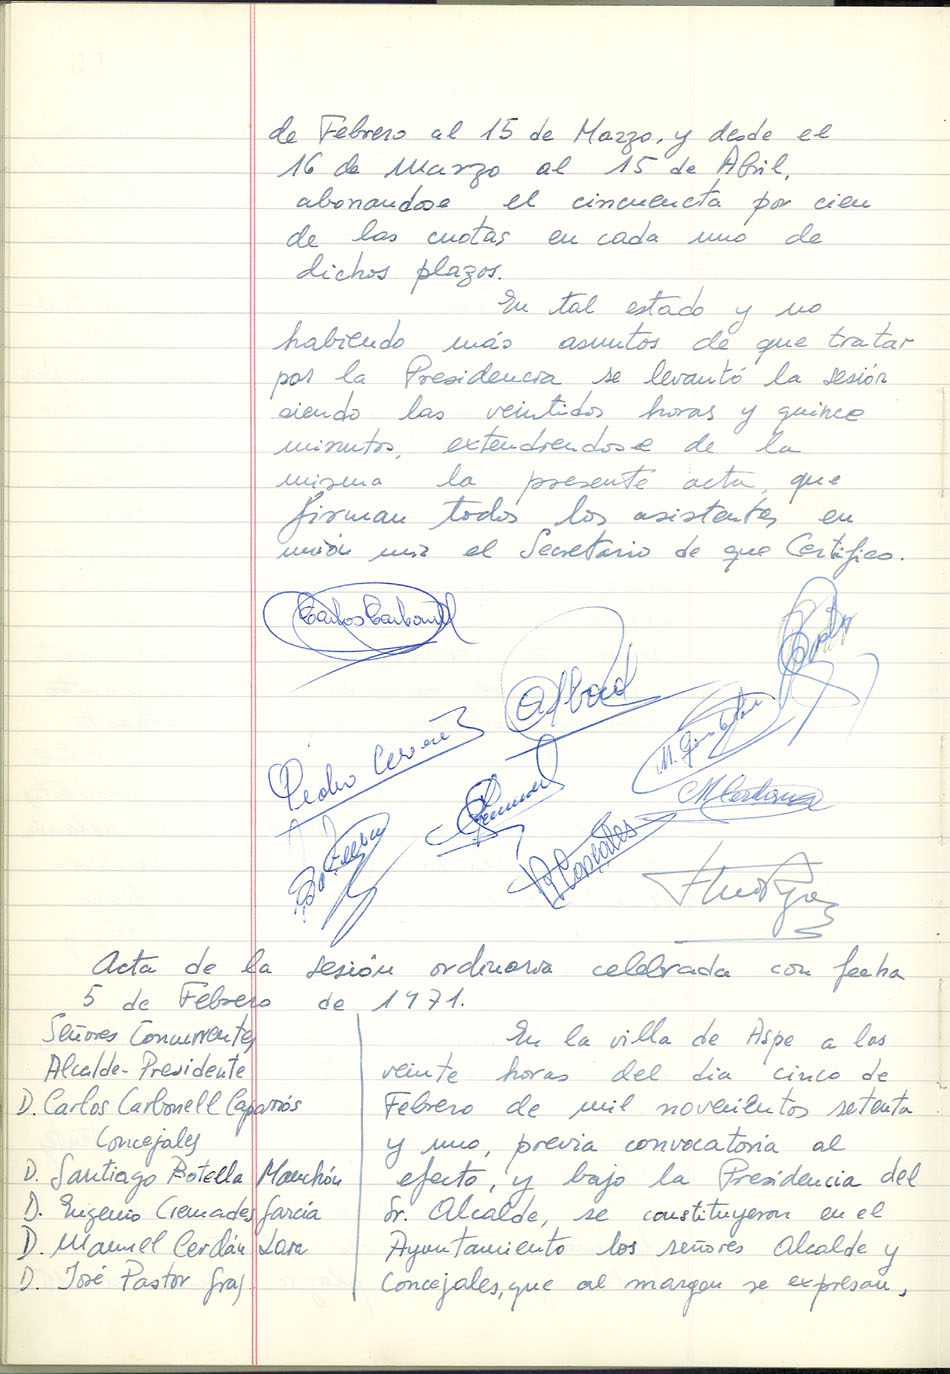 de Febrero al 15 de Marzo, y desde el
16 de Marzo al 15 de Abril,
abonandose el cincuenta por cien
de las cuotas en cada uno de
dichos plazos.
En tal estado y no
habiendo más asuntos de que tratar
por la Presidencia se levantó la sesión
siendo las veintidos horas y quince
minutos, extendiendose de la
misma la presente acta, que
firman todos los asistentes en
unión mia el Secretario de que Certifico.
Carlos Carbonell
Pedro Cerveró
Acta de la sesión ordinaria celebrada con fecha
5 de Febrero de 1971.
Señores Concurrentes
Alcalde-Presidente
D. Carlos Carbonell Caparrós
Concejales
D. Santiago Botella Manchón
D. Eugenio Cremades García
D. Manuel Cerdán Lara
D. José Pastor Gras
En la villa de Aspe a las
veinte horas del dia cinco de
Febrero de mil novecientos setenta
y uno, previa convocatoria al
efecto, y bajo la Presidencia del
Sr. Alcalde, se constituyeron en el
Ayuntamiento los señores Alcalde y
Concejales, que al margen se expresan,